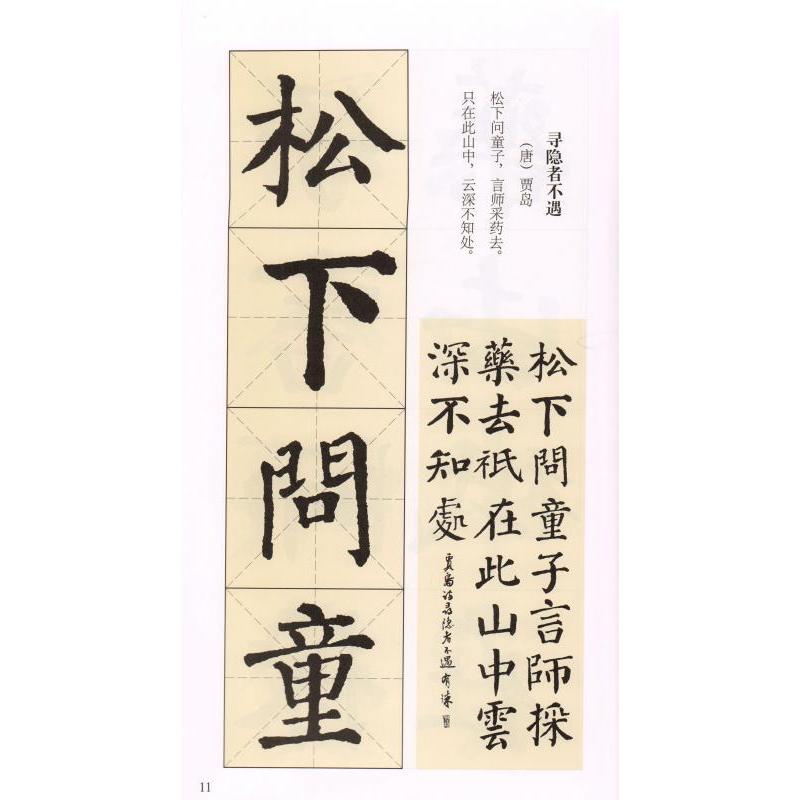 寻隐者不遇
（唐）贾岛
松下问童子，言师采药去。
只在此山中，云深不知处。
松下問童子言師採
藥去祇在此山中雲
深不知處
賈島詩尋隐者不遇 有深
松下問童
11